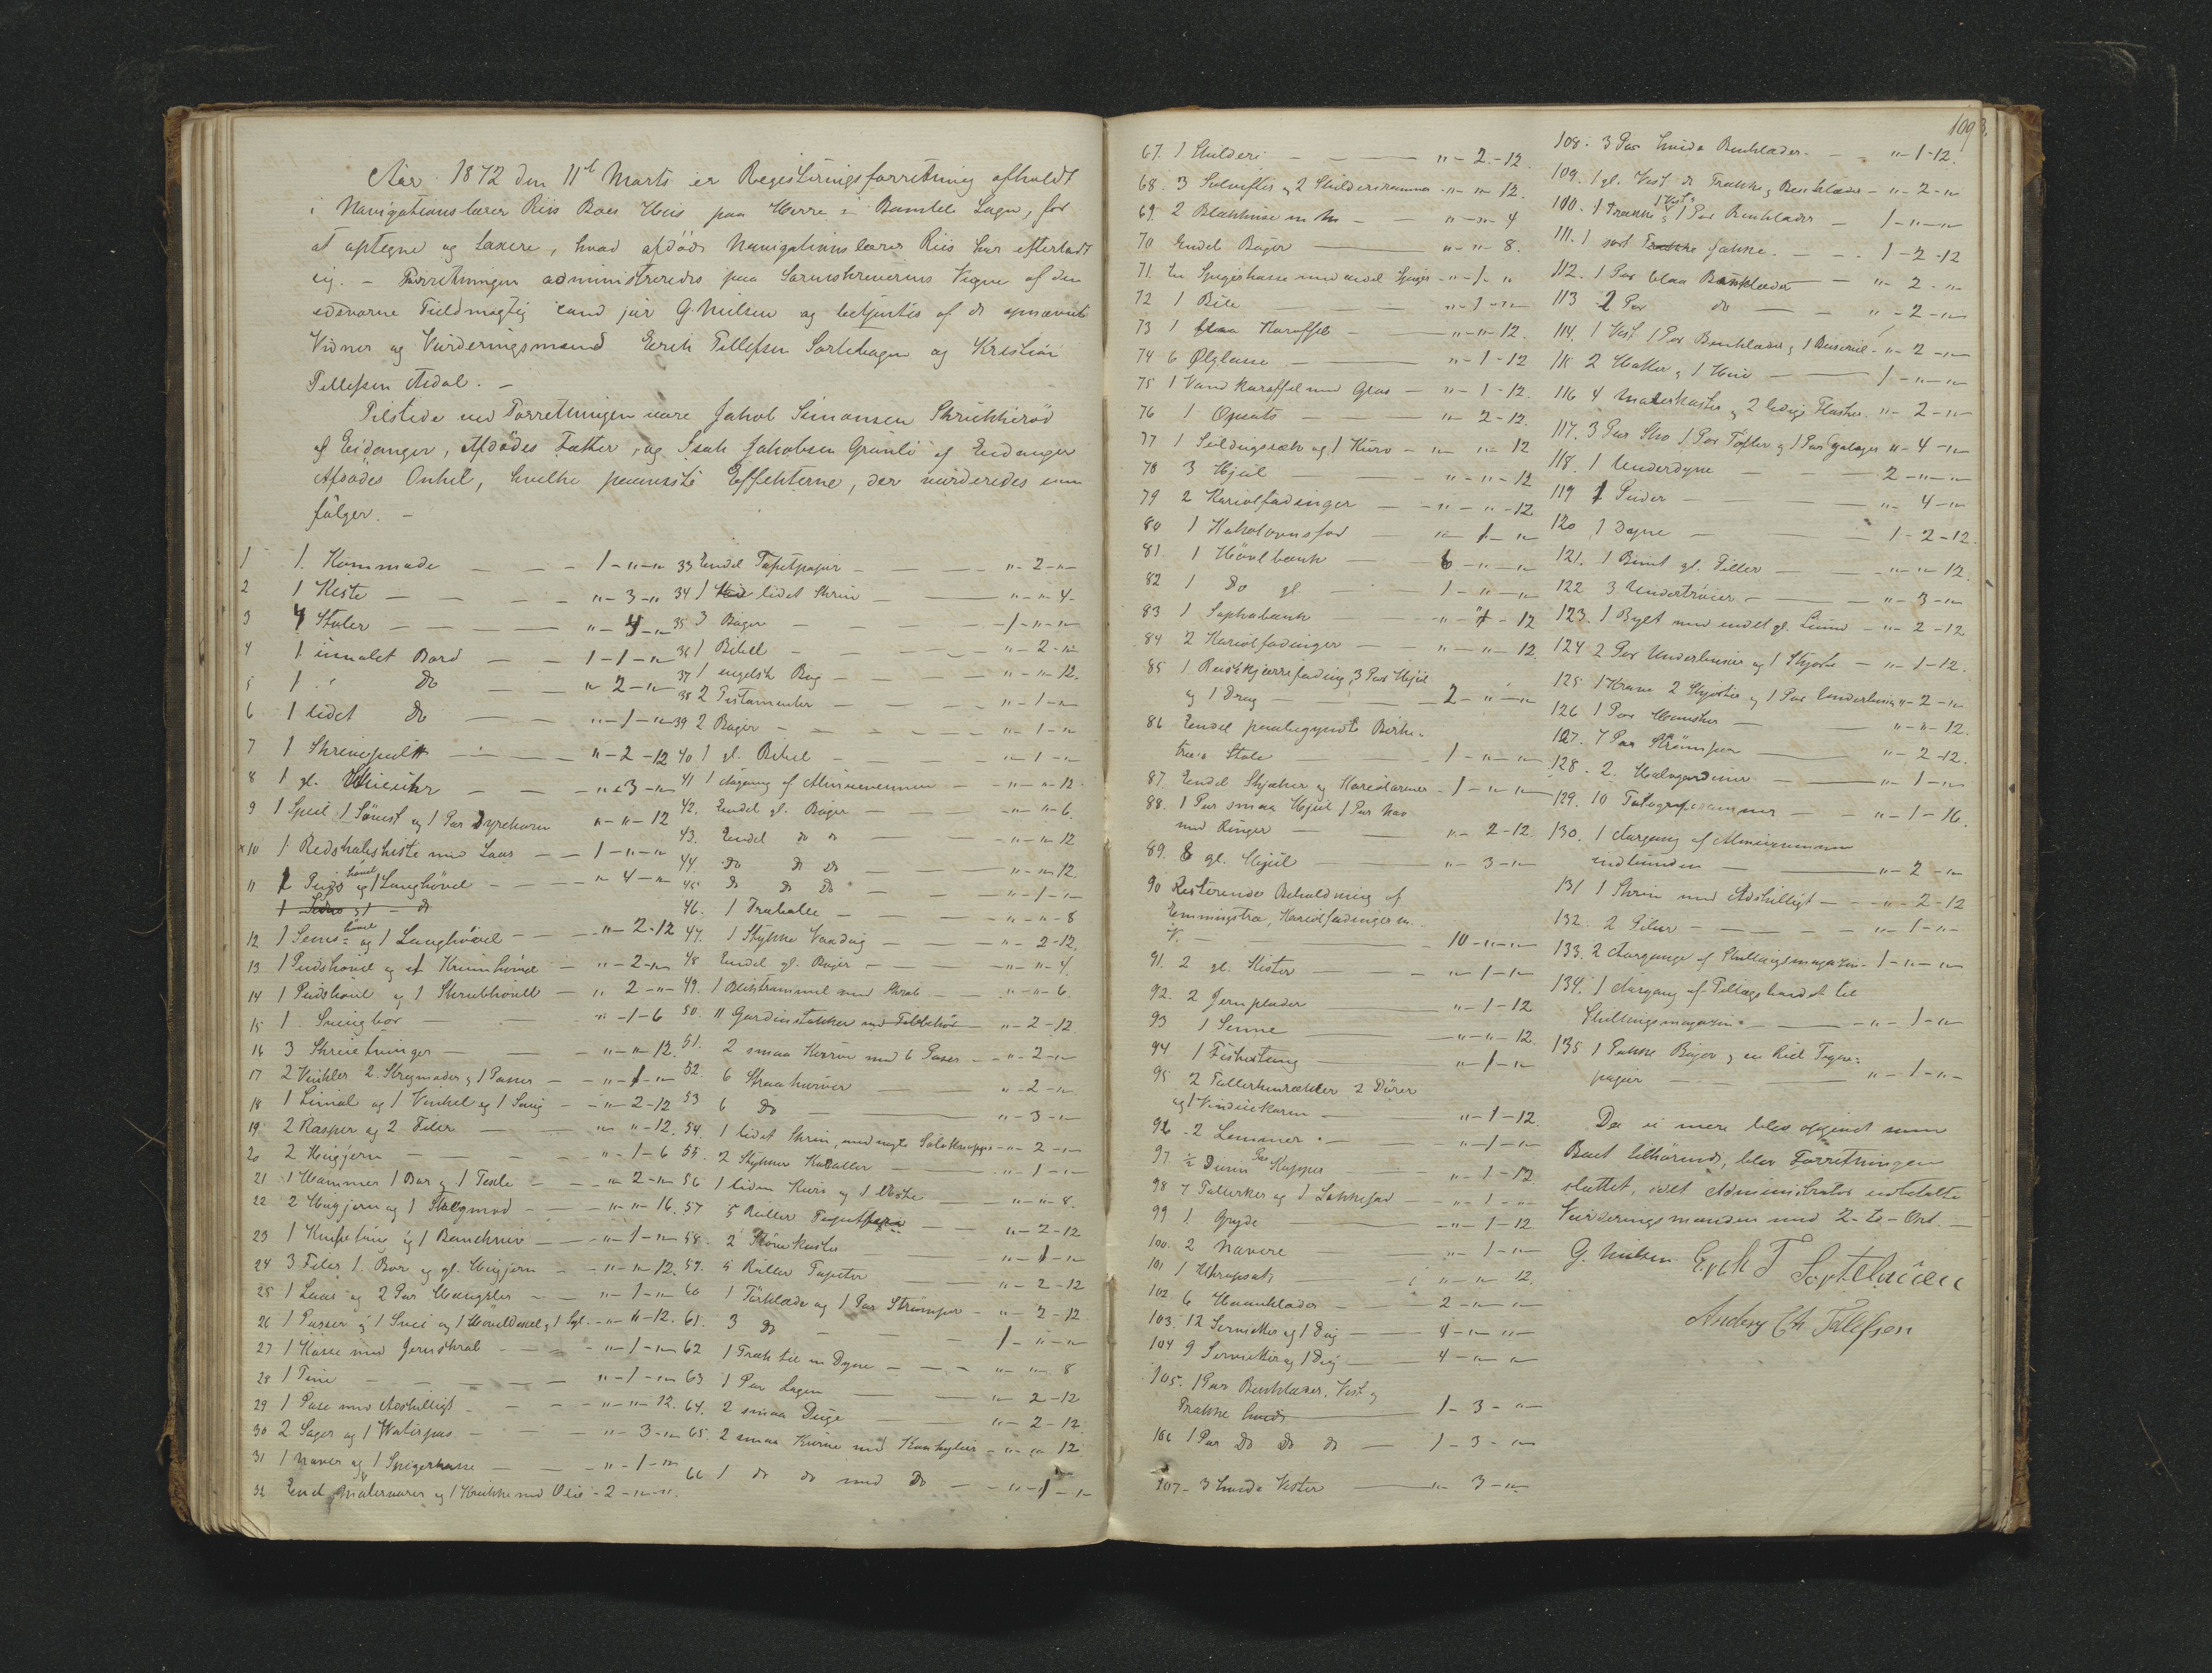 Aar 1872 den 11te Marts er Registreringsforretning afholdt
i Navigationslærer Riis Boes Huus paa Herre i Bamble Sogn, for
at optegne og taxere, hvad afdöde Navigationslærer Riis har efterladt
sig. - Forretningen administreredes paa Sorenskriverens Vegne af den
edsvorne Fuldmægtig cand jur G. Nielsen og betjentes af de opnævnte
Vidner og Vurderingsmænd Erik Tellefsen Sortebogen og Kristian
Tellefsen Aidal. -
Tilstede ved Forretningen vare Jakob Simonsen Skrukkeröd
af Eidanger, Afdödes Fatter, og Isak Jakobsen Grönli af Eidanger
Afdödes Onkel, hvilke paaviste Effekterne, der vurderedes som
fölger. -
1 1 Kommode - 1 - " - "
2 1 Kiste - " - 3 - "
3 4 Stoler - " - 4 - "
4 1 umalet Bord - 1 - 1 - "
5 1 " do - " 2 - "
6 1 lidet do - " - 1 - "
7 1 Skrivepult - " - 2 - 12
8 1 gl. - " - 3 - "
9 1 Speil 1 og 1 Par Dyrehorn " - " - 12
10 1 Redskabskiste med Laas - 1 - " - "
11 1 Puds hövel og 1 Langhövel - " 4 - "
12 1 hövel og 1 Langhövel - " - 2 - 12
13 1 Pudshövel og 1 Krumhövel - " - 2 - "
14 1 Pudshövel og 1 Skrubhövel - " 2 - "
15 1 Svingbor - " - 1 - 6
16 3 Skruetvinger - " - " - 12.
17 2 Vinkler 2 Stregmader og 1 Passer - " - 1 - "
18 1 Limal og 1 Vinkel og 1 - " - 2 - 12
19 2 Rasper og 2 Filer - " " - 12.
20 2 Hugjern - " - 1 - 6
21 1 Hammer 1 Bor og 1 Texle - " 2 - "
22 2 Hugjern og 1 Stregmod - " " - 16.
23 1 Knibetang og 1 - " - 1 - "
24 3 Filer 1 Bor og gl. Hugjern - " - " - 12.
25 1 Laas og 2 Par Hængsler - " - 1 - "
26 1 Passer og 1 og 1 og 1 Syl. - " - " - 12.
27 1 Kasse med Jernskrab - " - 1 - "
28 1 Tine - " - 1 - "
29 1 Pose med Adskilligt - " - " - 12.
30 2 Sager og 1 Vaterpas - " - 3 - "
31 1 Naver og 1 Spigerkasse - " - 1 - "
32 Endel Malervarer og 1 Krukke med Olie - 2 - " - ".
33 Endel Tapetpapir - " - 2 - "
34 1 lidet Skrin - " - " 4 -
35 3 Böger - 1 - " - "
36 1 Bibel - " - 2 - "
37 1 engelsk Bog - " - " 12.
38 2 Testamenter - " - 1 - "
39 2 Böger - " - 1 - "
40 1 gl. Bibel - " - 1 - "
41 1 Aargang af Almuevennen - " - " - 12.
42. Endel gl. Böger - " - " - 6.
43. Endel do do - " - " 12
44. do do do - " - " 12.
45. do do do - " - 1 - "
46. 1 - " - " - 8
47. 1 Stykke Vandtög - " - 2 - 12.
48 Endel gl. Böger - " - " - 4.
49. 1 Bliktrommel med Skrab - " - " 6.
50. 11 Gardinstokker med Tilbehör - " - 2 - 12.
51. 2 smaa Kurve med 6 - " - 2 - "
52. 6 Straakurver - " - 2 - "
53 6 do - " - 3 - "
54. 1 lidet Skrin, med nogle Sölvknapper - " - 2 - "
55. 2 Stykker - " - 1 - "
56 1 liden Kurv og 1 - " - " - 8.
57 5 Ruller - " - 2 - 12
58. 2 - " - 1 - "
59. 5 Ruller Tapeter - " - 2 - 12
60 1 Törklæde og 1 Par Strömper - " - 2 - 12.
61. 3 do - 1 - " - "
62 1 Træk til en Dyne - " - " 8
63 1 Par Lagen - " 2 - 12
64. 2 smaa Duge - " - 2 - 12.
65. 2 smaa Kurve med Konkylier - " - " 12
66 1 do do med do - " - 1 - "
109
67. 1 Skilderi - " - 2 - 12.
68. 3 og 2 Skilderirammer - " - " 12.
69. 2 Blækhuse m M - " - " - 4
70 Endel Böger - " - " - 8.
71. En Spigerkasse med endel Spiger - " - 1 - "
72 1 Bile - " - 1 - "
73 1 Karaffel - " - " - 12.
74 6 Ölglasse - " - 1 - 12
75 1 Vand karaffel med Glas - " - 1 - 12.
76 1 - " 2 - 12.
77 1 og 1 Kurv - " " 12
78 3 Hjul - " - " - 12
79 2 Kariolfadinger - " - " - 12
80 1 Kakelovnsfod - " - 1 - "
81. 1 Hövlbænk - 6 - " - "
82 1 do gl. - 1 - " - "
83 1 Sophabænk - " - " - 12
84 2 Kariolfadinger - " - " - 12.
85 1, 3 Par Hjul
og 1 Drag - 2 - " - "
86 Endel paabegyndte Birke-
træs Stole - 1 - " - "
87. Endel Skjæker og Kariolarmer - 1 - " - "
88. 1 Par smaa Hjul 1 Par Nav
med Ringer - " - 2 - 12.
89. 8 gl. Hjul - " - 3 - "
90 Resterende Beholdning af
Emningstræ, Kariolfadinger m.
V. - 10 - " - "
91. 2 gl. Kister - " - 1 - "
92. 2 Jernplader - " - 1 - 12
93 1 - " - " 12.
94 1 - " - 1 - "
95 2 Tallerkenrækker 2 Dörer
og 1 Vindueskarm - " - 1 - 12.
96 2 Lemmer - " - 1 - "
97 ½ Dusin Par Kopper - " - 1 - 12
98 7 Tallerker og 1 - " - 1 - "
99 1 Gryde - " - 1 - 12
100. 2 Navere - " - 1 - "
101 1 - " - " 12.
102 6 Haandklæder - 2 - " - "
103. 12 Servietter og 1 Dug - 4 - " - "
104 9 Servietter og 1 Dug - 4 - " - "
105. 1 Par Benklæder, Vest og
Frakke - 1 - 3 - "
106 1 Par do do do - 1 - 3 - "
107 - 3 hvide Vester - " 3 - "
108. 3 Par hvide Benklæder. - " - 1 - 12.
109. 1 gl. Vest do Frakke og Benklæder - " - 2 - "
100. 1 Frakke 1 Vest og 1 Par Benklæder - 1 - " - "
111. 1 sort Frakke Jakke. - 1 - 2 - 12
112. 1 Par blaa Benklæder - " 2 - "
113 2 Par do - " - 2 - "
114. 1 Vest 1 Par Benklæder og 1 - " - 2 - "
115 2 Hatter og 1 Hue - 1 - " - "
116 4 og 2 ledige Flasker. " - 2 - "
117. 3 Par Sko 1 Par Töfler og 1 Par Galoger " - 4 - "
118. 1 Underdyne - 2 - " - "
119 1 Puder - " - 4 - "
120 1 Dyne - 1 - 2 - 12.
121. 1 Bundt gl. Filler - " - " 12.
122 3 Undertröier - " - 3 - "
123. 1 Bylt med endel gl. Linned - " - 2 - 12
124 2 Par Underbuxer og 1 Skjorte - " - 1 - 12.
125 1 Krave 2 Skjorter og 1 Par Underbuxer " - 2 - "
126 1 Par Handsker - " - " 12.
127. 7 Par Strömper - " - 2 - 12.
128. 2. - " - 1 - "
129. 10 Fotografirammer - " - 1 - 16.
130. 1 Aargang af Almuevennen
indbunden - " - 2 - "
131 1 Skrin med Adskilligt - " - 2 - 12
132. 2 Filer - " - 1 - "
133. 2 Aargange af Skillingsmagazin - 1 - " - "
134. 1 Aargang af Tillægsbindet til
Skillingsmagazin - " - 1 - "
135 1 Pakke Böger og en Deel
papir - " - 1 - "
Da ei mere blev opgivet som
Boet tilhörende, blev Forretningen
sluttet, idet Administrator udbetalte
Vurderingsmændene med 2 - to - Ort. -
G. Nielsen. Erik T Sortebogen
Anders Ch Tellefsen